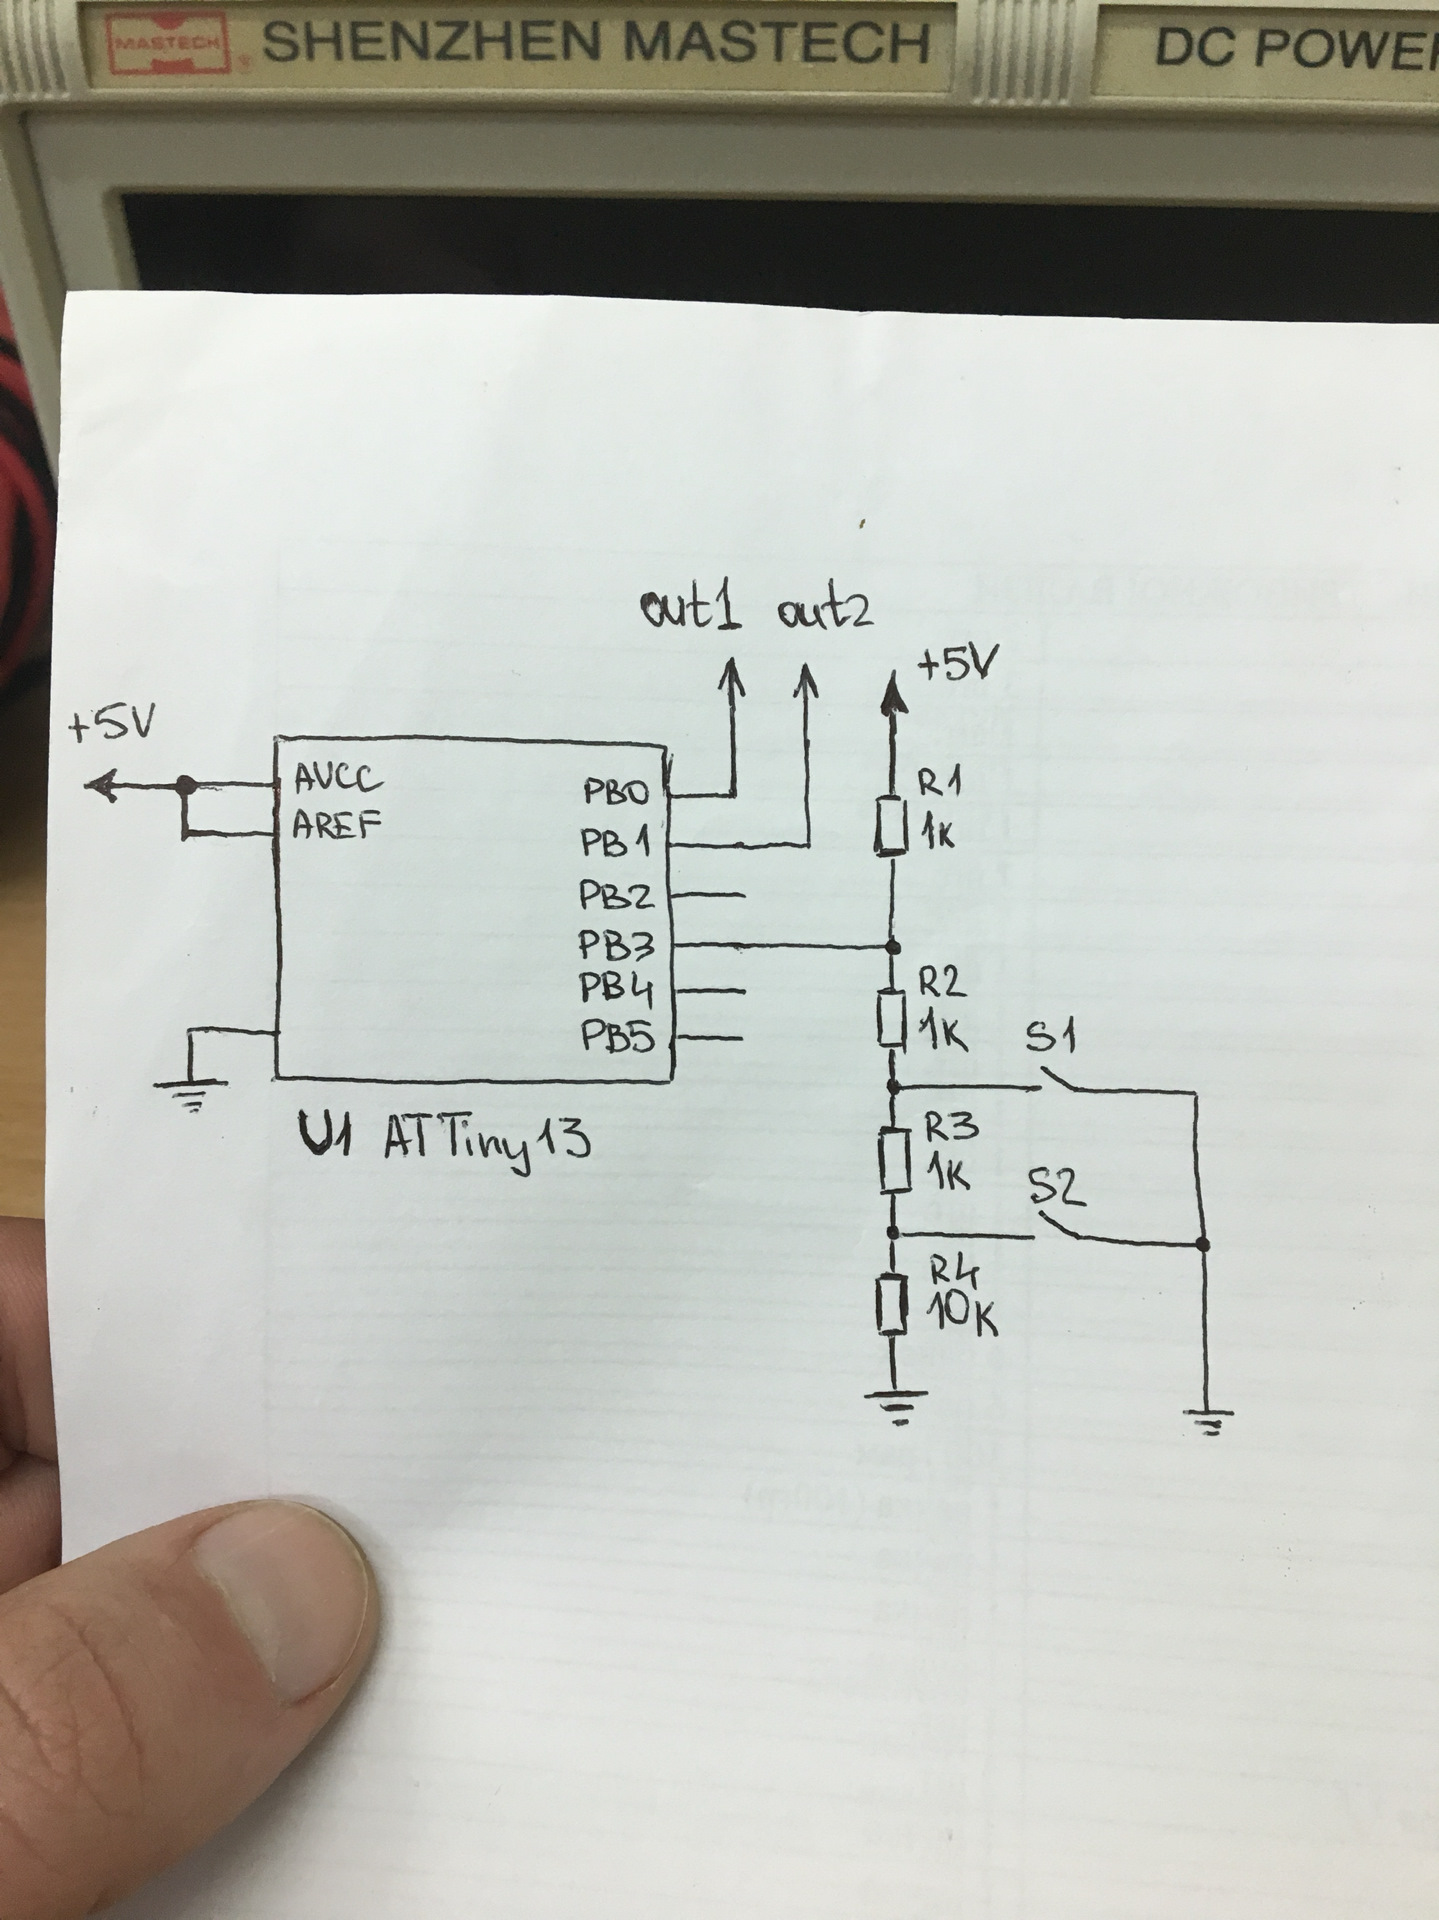 MASTECH
®
SHENZHEN MASTECH
DC POWER
out1 out2
+5V
+5V
AVCC
AREF
PB0
PB1
PB2
PB3
PB4
PB5
R1
1K
R2
1K
S1
R3
1K
S2
R4
10K
U1 ATTiny13